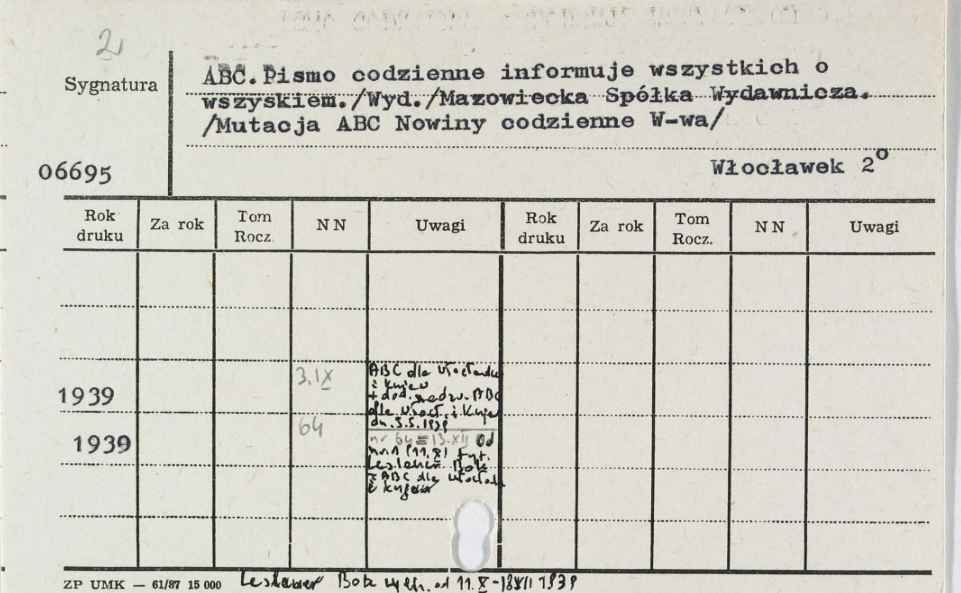 2
Sygnatura
ABC. Pismo codzienne informuje wszystkich o
wszyskiem./Wyd./Mazowiecka Spółka Wydawnicza.
/Mutacja ABC Nowiny codzienne W-wa/
06695
Włocławek 2°
Rok druku Za rok Tom Rocz. NN Uwagi Rok druku Za rok Tom Rocz. NN Uwagi
1939 3.IX
ABC dla Włocławka
i Kujaw
+ dod. nadzw. ABC
dla Włocł. i Kujaw
dn. 3.5.1939
1939 64
nr 64 = 13.XII od
nr 1 (11.X) tyt.
Leslauer Bote
= ABC dla Włocławka
i Kujaw
ZP UMK — 61/87 15 000
Leslauer Bote wych. od 11.X- 1939